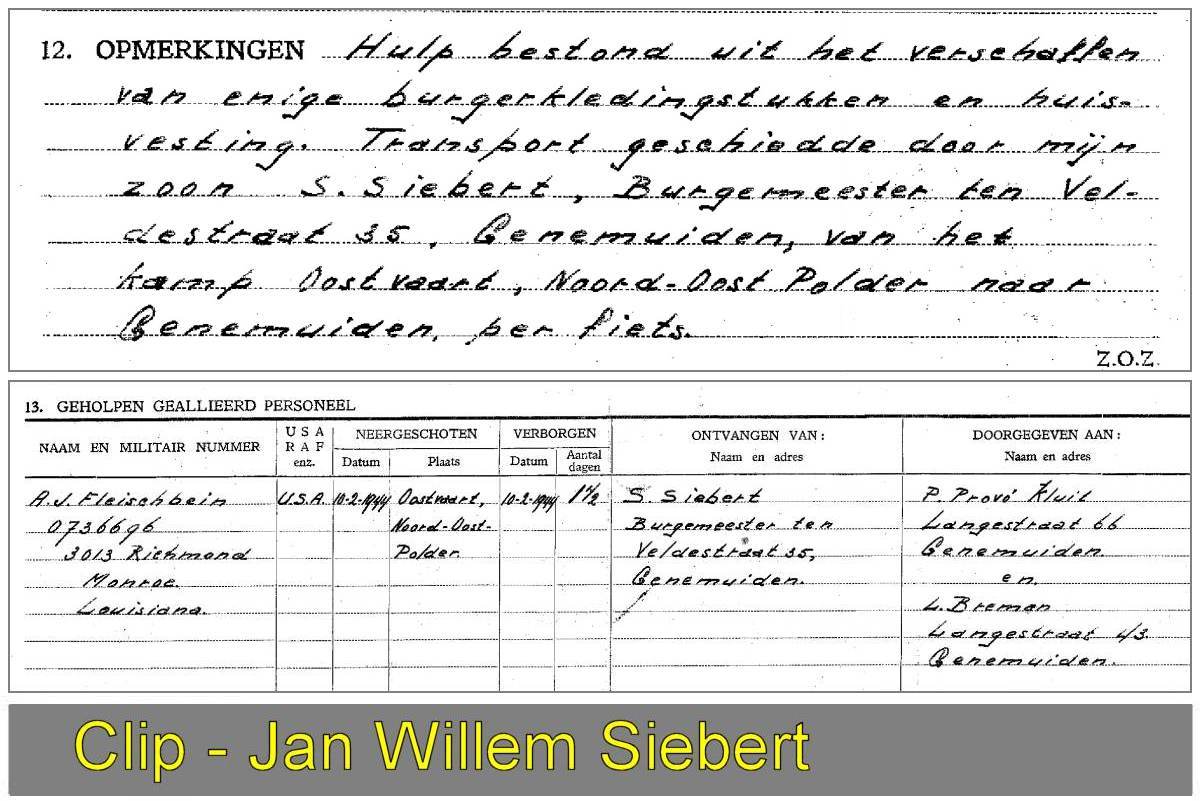 12. OPMERKINGEN Hulp bestond uit het verschaffen
van enige burgerkledingstukken en huis-
vesting. Transport geschiedde door mijn
zoon S. Siebert, Burgemeester ten Vel-
destraat 35, Genemuiden, van het
kamp Oostvaart, Noord-Oost Polder naar
Genemuiden, per fiets.
Z.O.Z.
13. GEHOLPEN GEALLIEERD PERSONEEL
NAAM EN MILITAIR NUMMER
U S A
R A F
enz.
NEERGESCHOTEN
Datum Plaats
VERBORGEN
Datum Aantal
dagen
ONTVANGEN VAN:
Naam en adres
DOORGEGEVEN AAN:
Naam en adres
A.J. Fleischbein U.S.A. 10-2-1944 Oostvaart, 10-2-1944 1 1/2 S. Siebert P. Provó Kluit
0736696 Noord-Oost- Burgemeester ten Langestraat 66
3013 Richmond Polder. Veldestraat 35, Genemuiden
Monroe. Genemuiden. en.
Louisiana. L. Breman
Langestraat 43.
Genemuiden.
Clip - Jan Willem Siebert